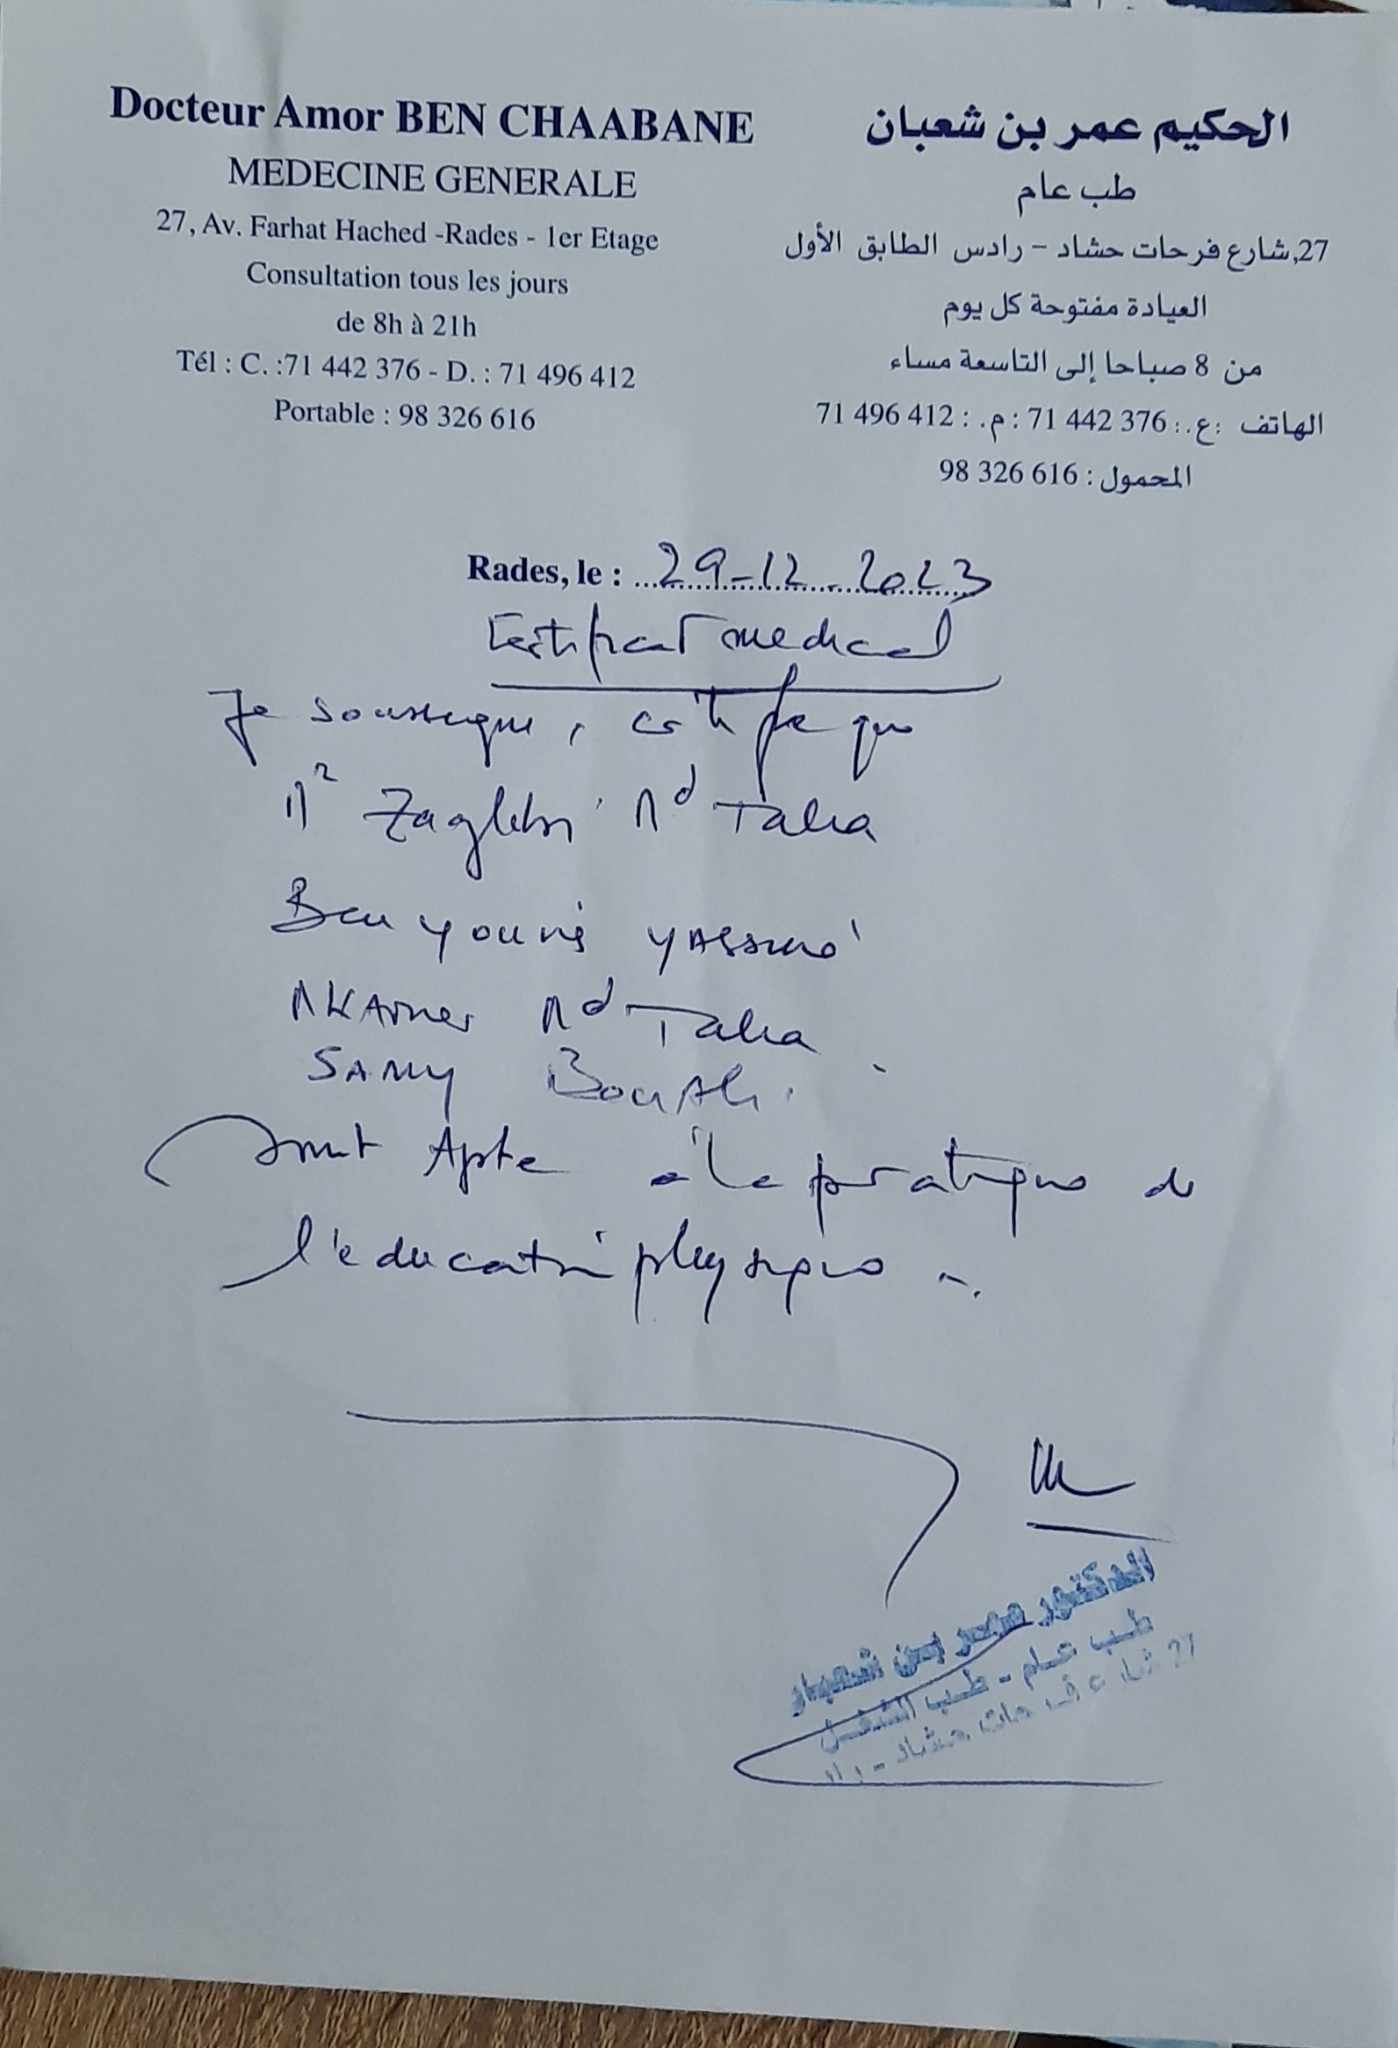 Docteur Amor BEN CHAABANE
MEDECINE GENERALE
27, Av. Farhat Hached -Rades - 1er Etage
Consultation tous les jours
de 8h à 21h
Tél : C. :71 442 376 - D. : 71 496 412
Portable : 98 326 616
الحكيم عمر بن شعبان
طب عام
27,شارع فرحات حشاد - رادس الطابق الأول
العيادة مفتوحة كل يوم
من 8 صباحا إلى التاسعة مساء
الهاتف :ع.: 71 442 376 :م. : 71 496 412
المحمول : 98 326 616
Rades, le : 29-12-2023
Certificat medical
Je soussigne, certifie que
Mr Zaglebi Md Taha
Ben younes yassine
Md Taha
SAMY
sont Apte à la pratique de
l'éducation physique
الدكتور عمر بن شعبان
طب عام - طب الشغل
27 شارع فرحات حشاد -